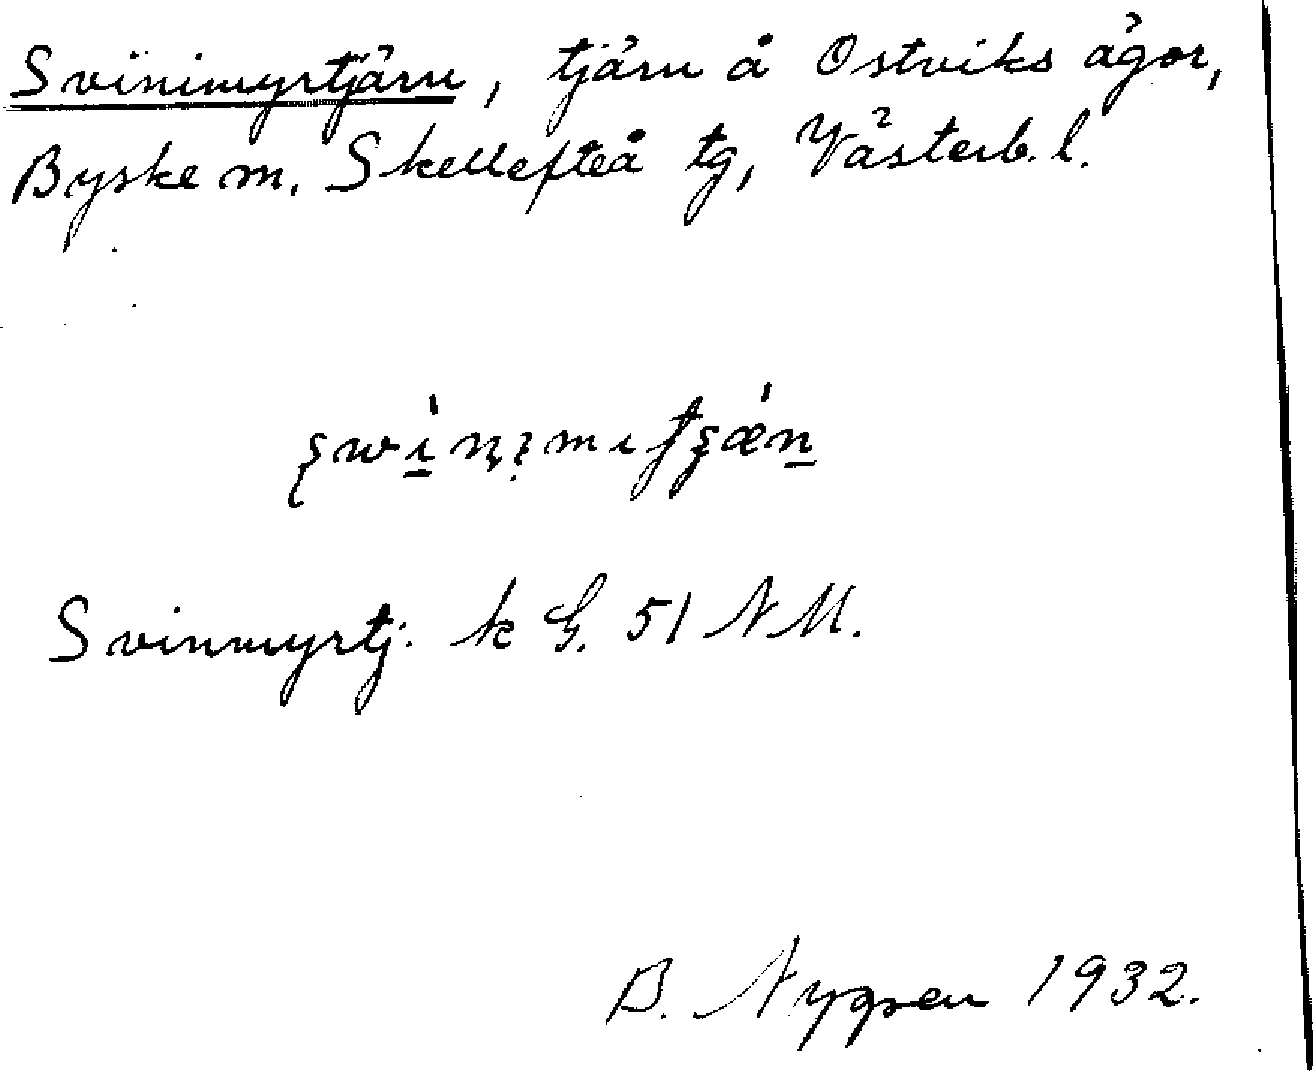 Svinimyrtjärn, tjärn å Ostviks ägor,
Byske sn. Skellefteå tg, Västerb. l.
Svinmyrtj. k G. 51 NM.
B. Nygren 1932.